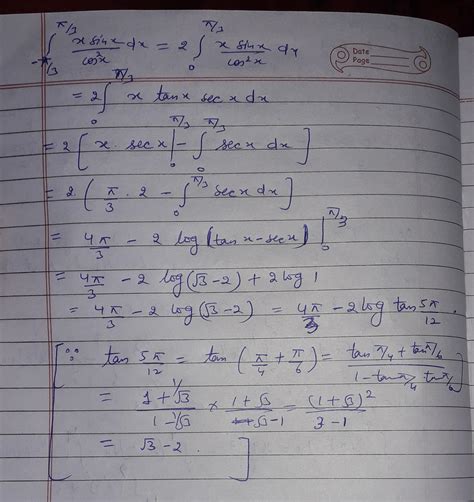 ∫_{-π/3}^{π/3} x sinx/cos²x dx = 2 ∫_0^{π/3} x sinx/cos²x dx
Date
Page
= 2 ∫_0^{π/3} x tanx secx dx
= 2 [ x · secx |_0^{π/3} - ∫_0^{π/3} secx dx ]
= 2 ( π/3 · 2 - ∫_0^{π/3} secx dx ]
= 4π/3 - 2 log(tanx-secx) |_0^{π/3}
= 4π/3 - 2 log(√3-2) + 2 log 1
= 4π/3 - 2 log(√3-2) = 4π/3 - 2 log tan 5π/12 .
[ ∵ tan 5π/12 = tan ( π/4 + π/6 ) = (tan π/4 + tan π/6)/(1 - tan π/4 tan π/6)
= (1 + 1/√3)/(1 - 1/√3) × (1+√3)/(√3-1) = (1+√3)²/(3-1)
= √3 - 2 . ]